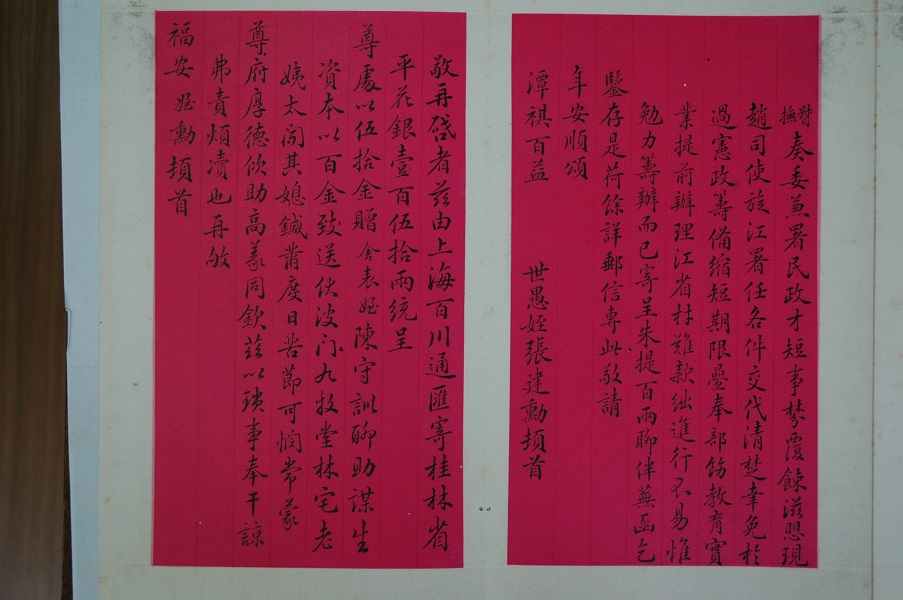 督
撫奏委兼署民政才短事棼覆餗滋懼現
趙司使旋江署任各件交代清楚幸免於
過憲政籌備縮短期限疊奉部飭教育實
業提前辦理江省材難款絀進行不易惟
勉力籌辦而已寄呈朱提百兩聊伴蕪函乞
鑒存是荷餘詳郵信專此敬請
年安順頌
潭祺百益 世愚姪張建勳頓首
敬再啓者茲由上海百川通匯寄桂林省
平花銀壹百伍拾兩統呈
尊處以伍拾金贈舍表姪陳守訓聊助謀生
資本以百金致送伏波門九牧堂林宅老
姨太聞其媳鍼黹度日苦節可憫常蒙
尊府厚德佽助高義同欽茲以瑣事奉干諒
弗責煩瀆也再敂
福安姪勳頓首